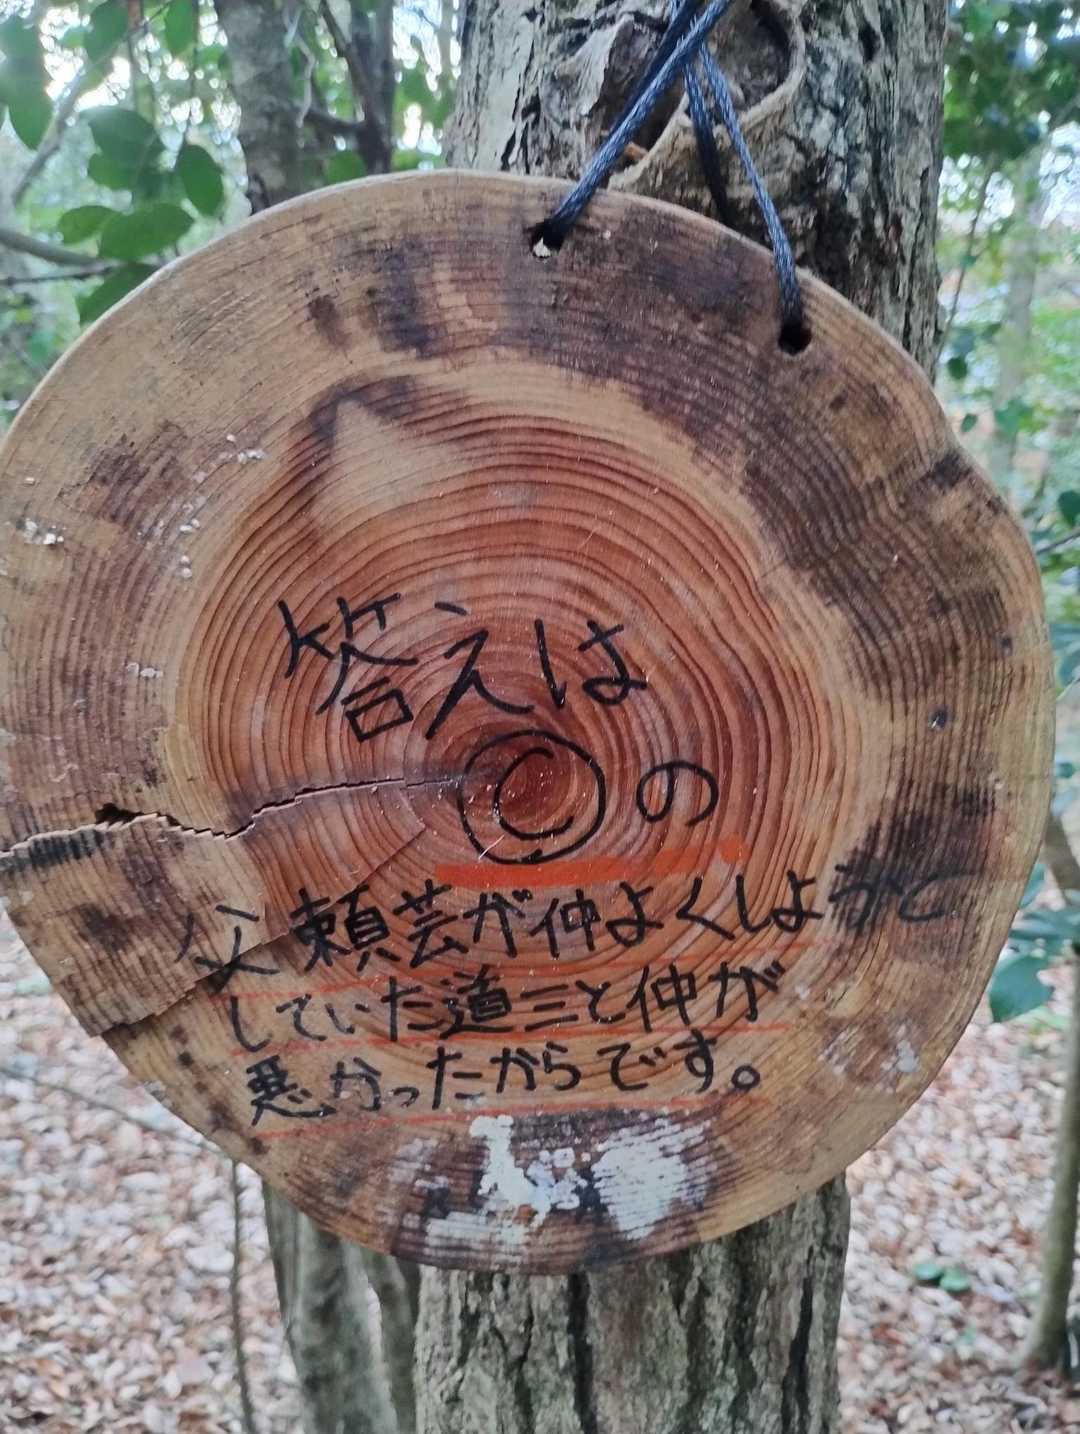 答えは
Ⓒの
父頼芸が仲よくしよかと
していた道三と仲が
悪かったからです。